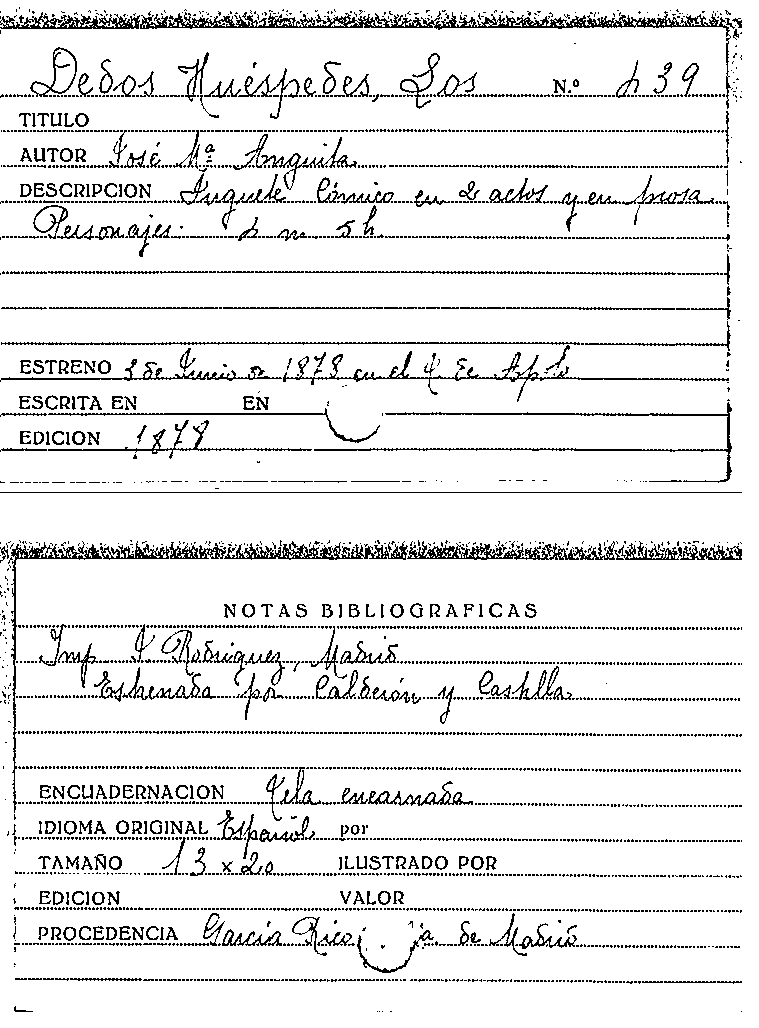 Dedos Huéspedes, Los N.º 439
TITULO
AUTOR José Mª Anguita
DESCRIPCION Juguete Cómico en 2 actos y en prosa.
Personajes. 4 m. 5 h.
ESTRENO 3 de Junio de 1878 en el T. de Apolo
ESCRITA EN EN
EDICION 1878
NOTAS BIBLIOGRAFICAS
Imp J. Rodriguez, Madrid
Estrenada por Calderón y Castilla.
ENCUADERNACION Tela encarnada
IDIOMA ORIGINAL Español por
TAMAÑO 13 x 20 ILUSTRADO POR
EDICION VALOR
PROCEDENCIA Garcia Rico de Madrid